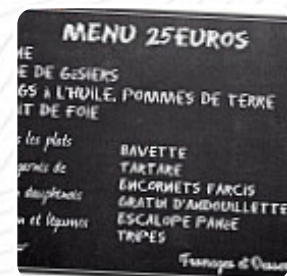 MENU 25EUROS
ME
E DE GESIERS
GS à L'HUILE, POMMES DE TERRE
T DE FOIE
s les plats
garnis de
dauphinois
n et légumes
BAVETTE
TARTARE
ENCORNETS FARCIS
GRATIN D'ANDOUILLETTE
ESCALOPE PANÉE
TRIPES
Fromages et Desser